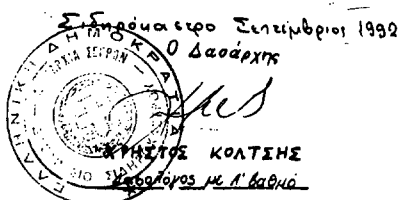 Σιδηρόκαστρο Σεπτέμβριος 1992
Ο Δασάρχης
ΕΛΛΗΝΙΚΗ ΔΗΜΟΚΡΑΤΙΑ
ΣΕΡΡΩΝ
ΧΡΗΣΤΟΣ ΚΟΛΤΣΗΣ
Δασολόγος με Α' βαθμό